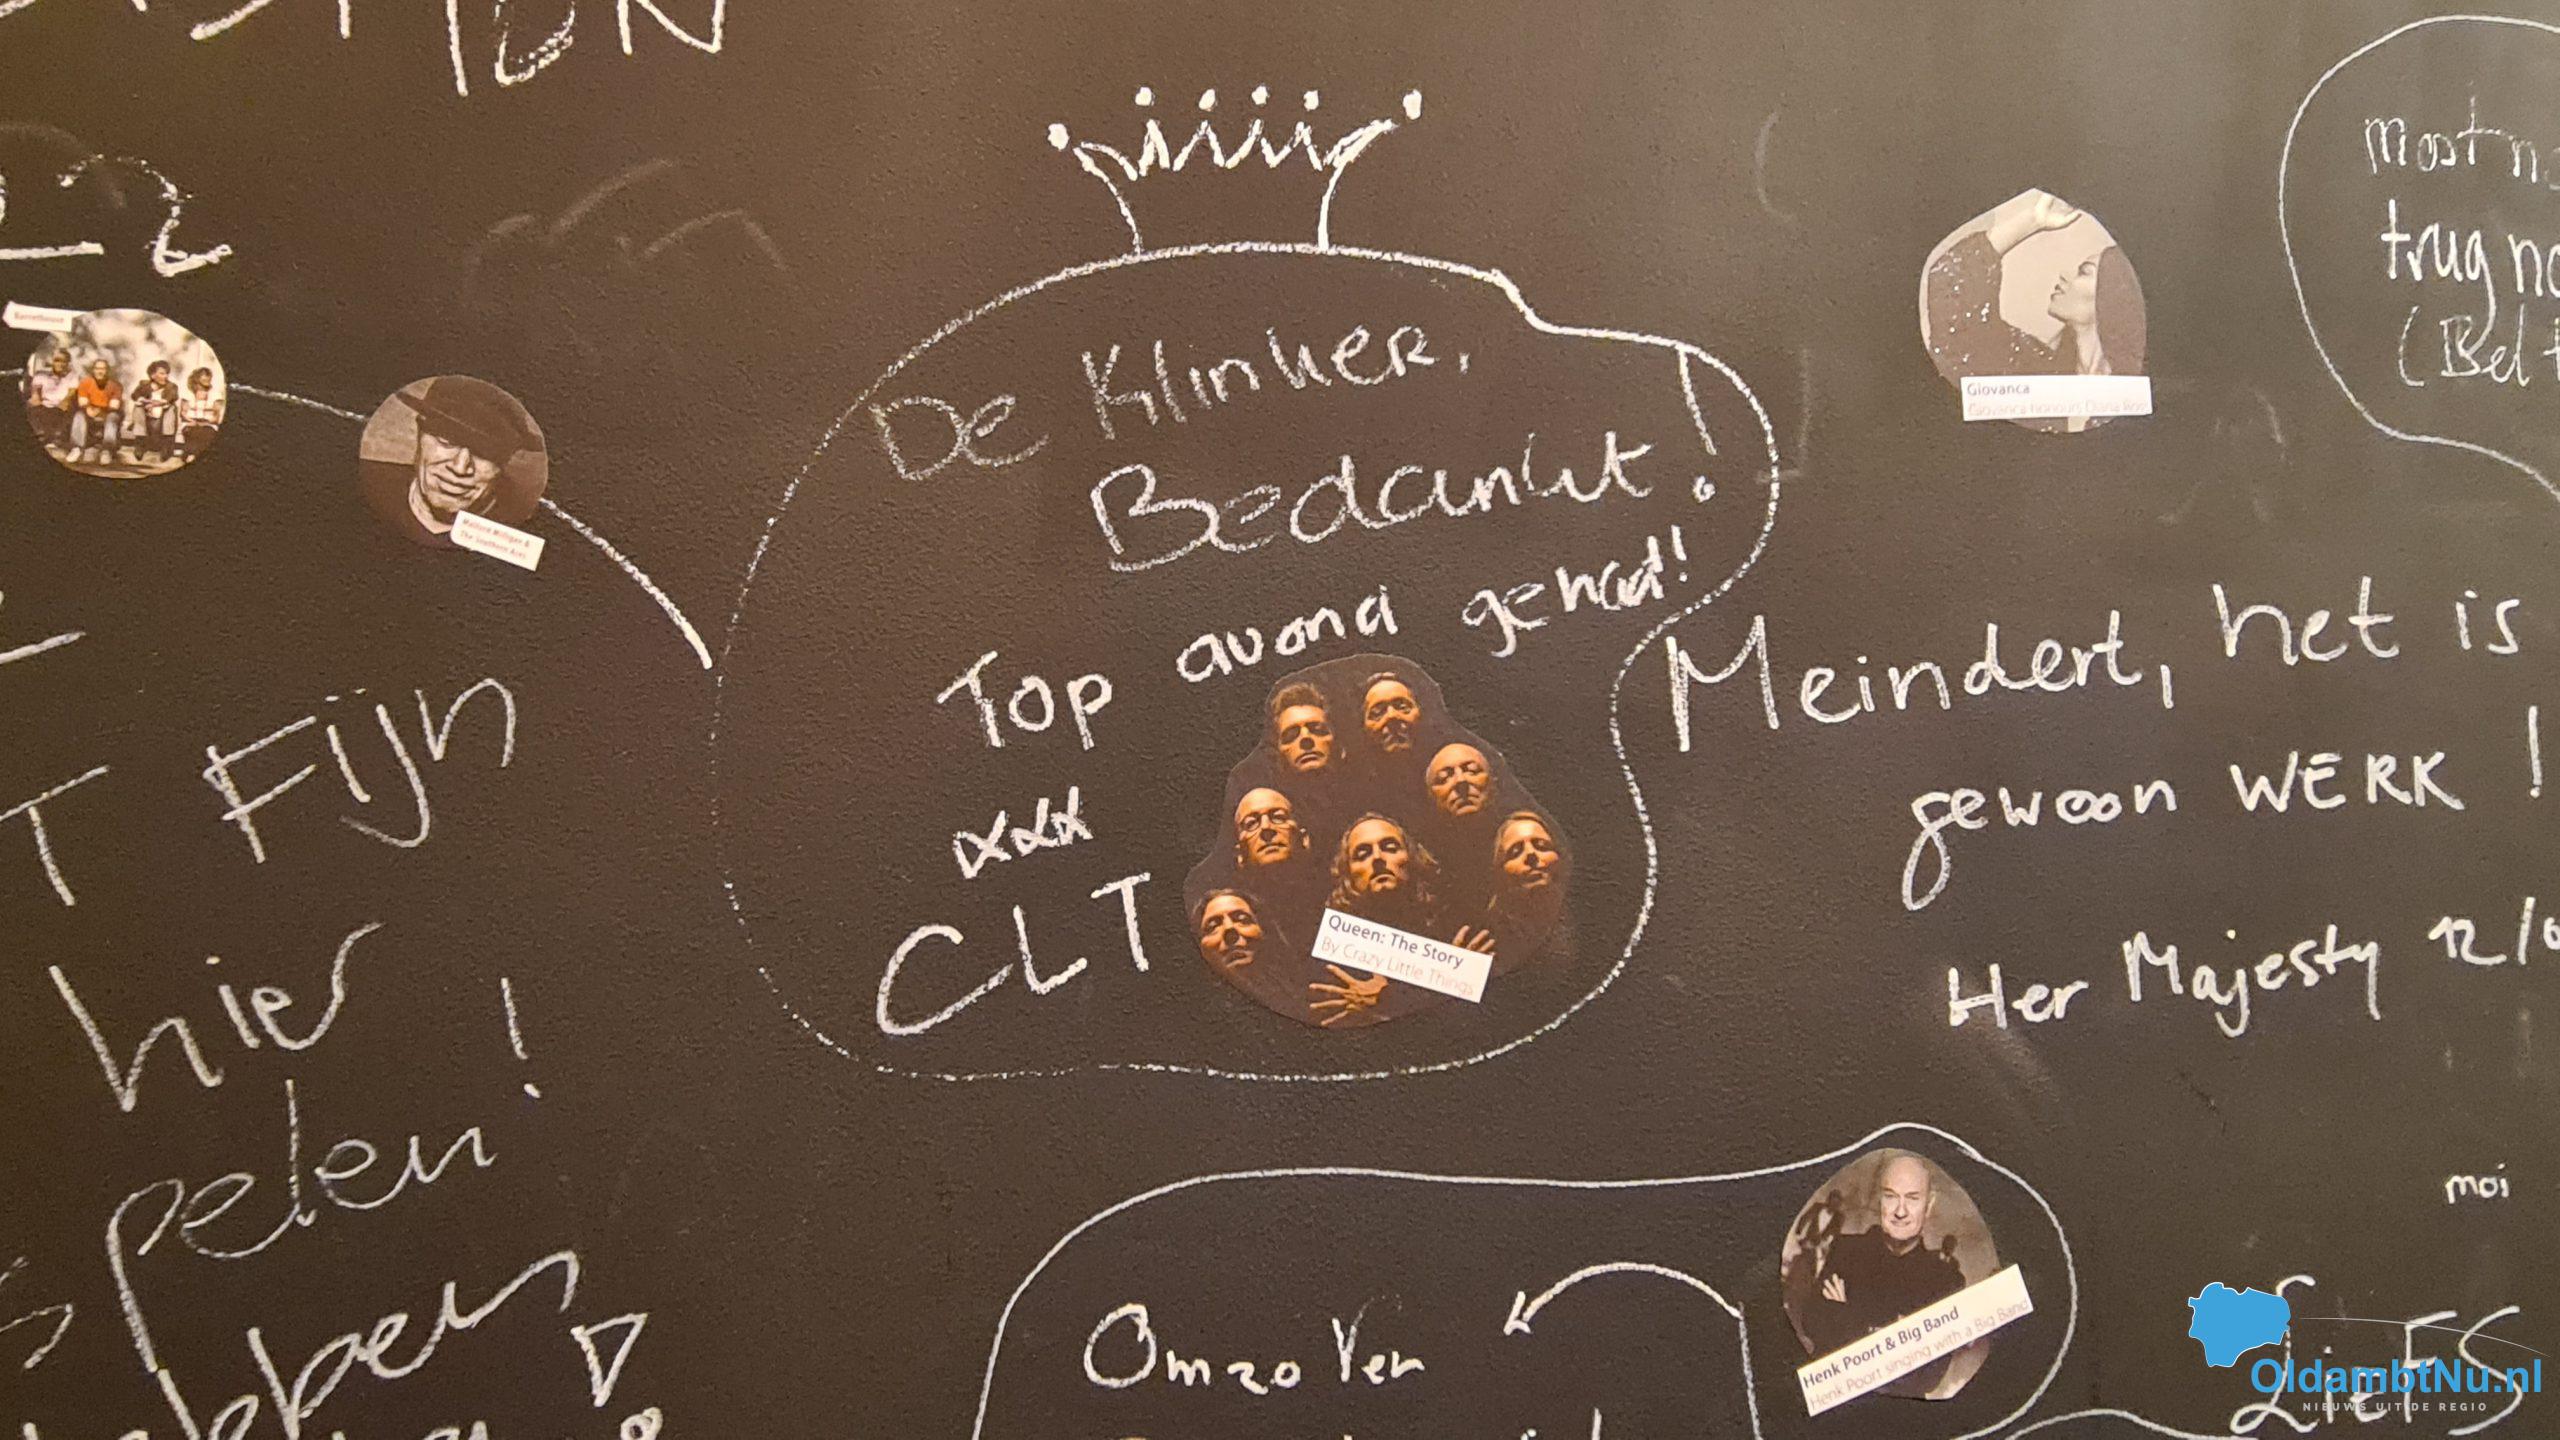 De Klinker,
Bedankt!
Top avond gehad!
xxx
CLT
Queen: The Story
By Crazy Little Things
Barrelhouse
Malford Milligan &
The Southern Aces
T Fijn
hier
spelen!
Giovanca
Giovanca honours Diana Ross
trug
Meindert, het is
gewoon WERK!
Her Majesty 12/
Henk Poort & Big Band
Henk Poort singing with a Big Band
moi
LiEFS
OldambtNu.nl
NIEUWS UIT DE REGIO